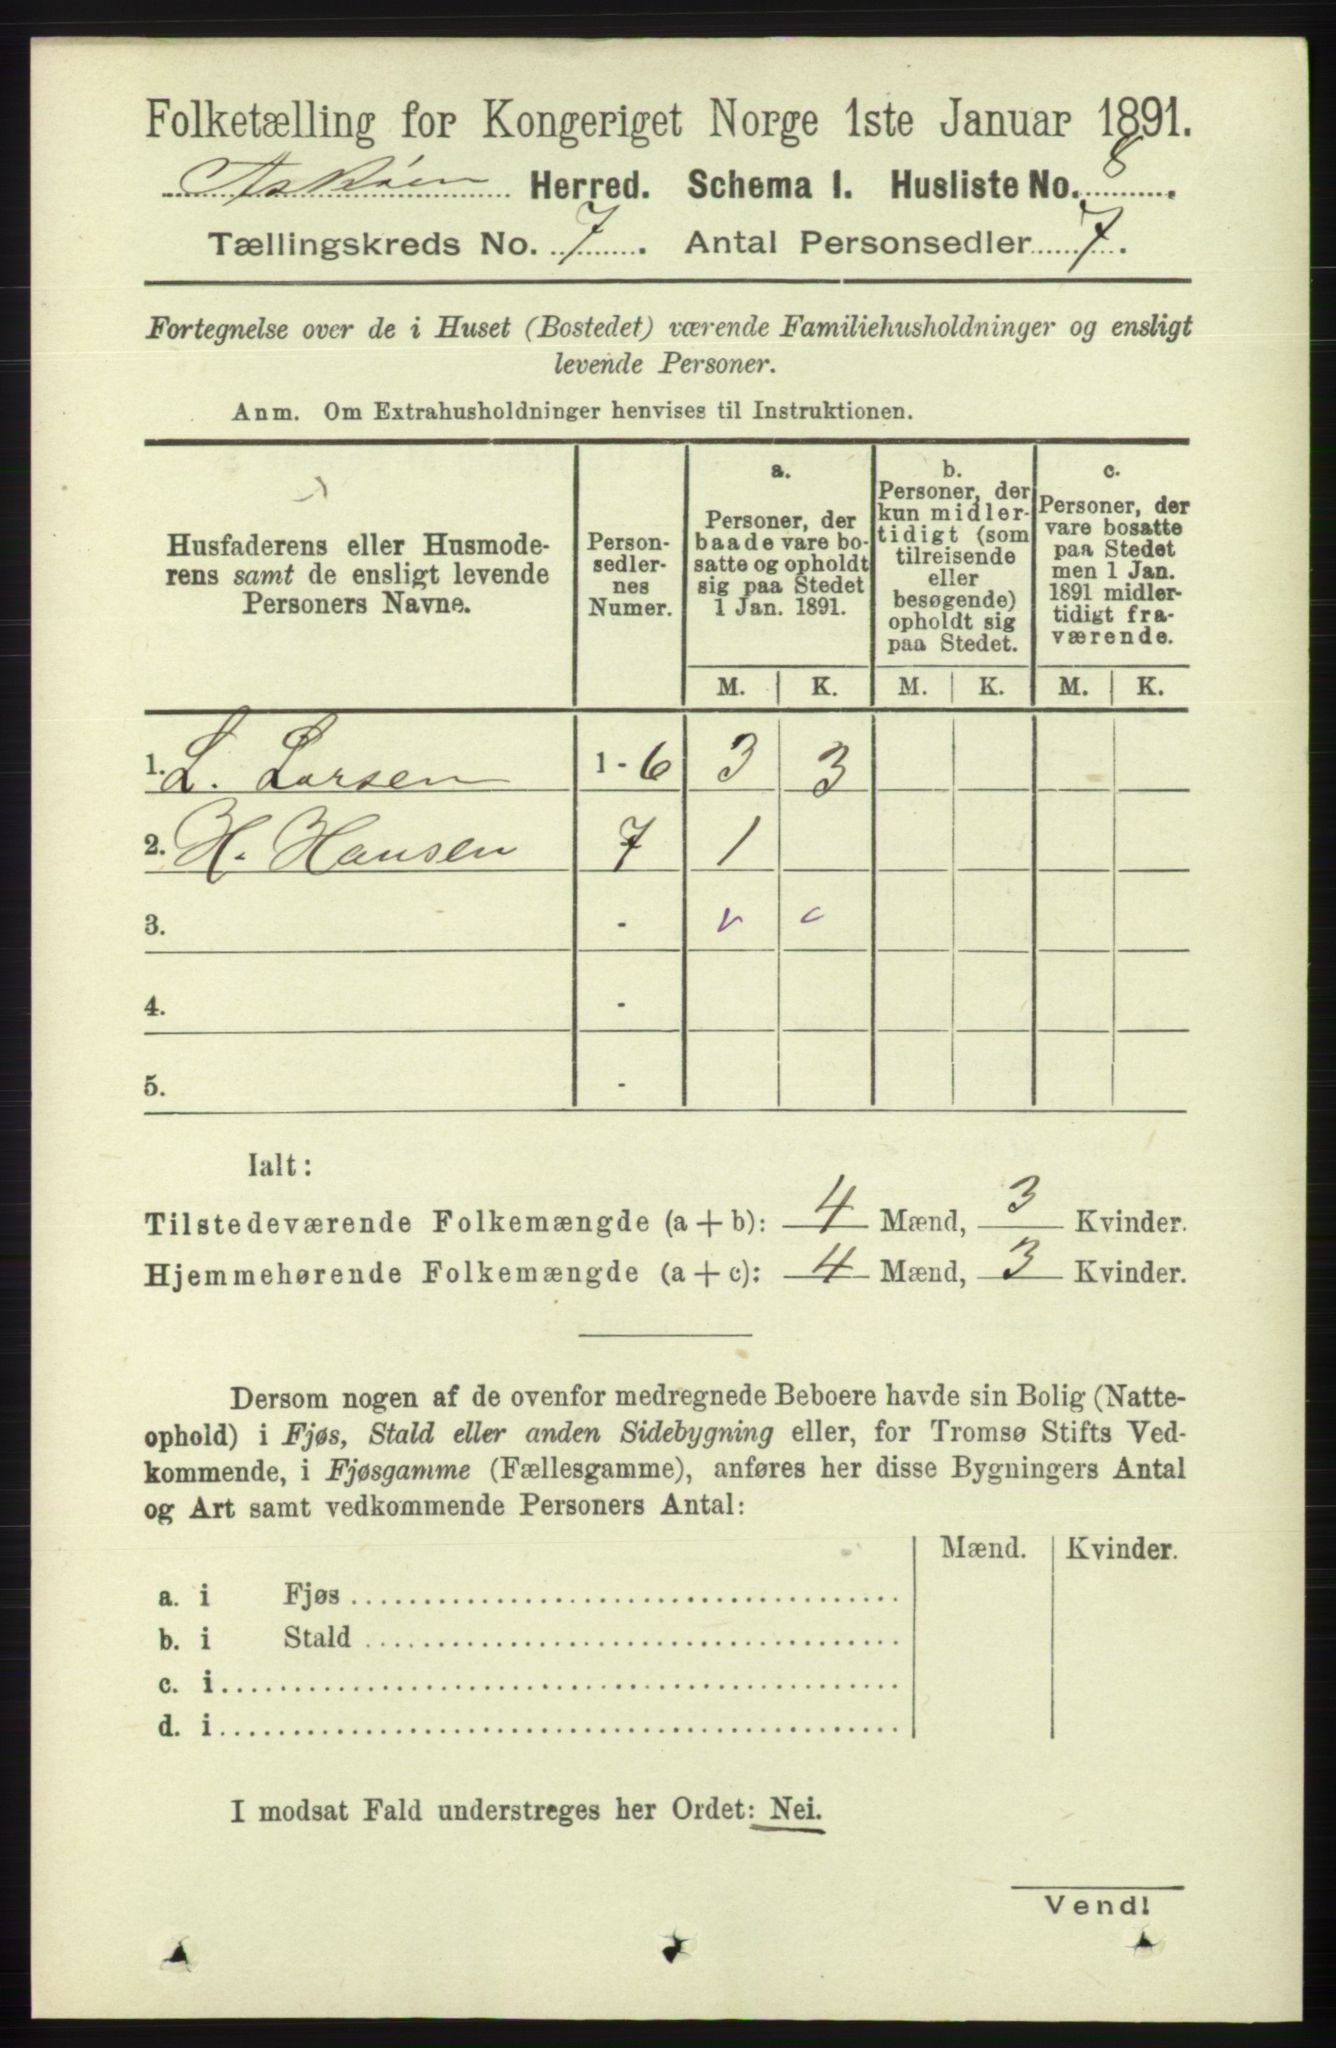 Folketælling for Kongeriget Norge 1ste Januar 1891.
Askøen Herred. Schema 1. Husliste No. 8.
Tællingskreds No. 7. Antal Personsedler 7.
Fortegnelse over de i Huset (Bostedet) værende Familiehusholdninger og ensligt
levende Personer.
Anm. Om Extrahusholdninger henvises til Instruktionen.
Husfaderens eller Husmode-
rens samt de ensligt levende
Personers Navne.
Person-
sedler-
nes
Numer.
a.
Personer, der
baade vare bo-
satte og opholdt
sig paa Stedet
1 Jan. 1891.
b.
Personer, der
kun midler-
tidigt (som
tilreisende
eller
besøgende)
opholdt sig
paa Stedet.
c.
Personer, der
vare bosatte
paa Stedet
men 1 Jan.
1891 midler-
tidigt fra-
værende.
M. K. M. K. M. K.
1. L. Larsen 1 - 6 3 3
2. H. Hansen 7 1
3. -
4. -
5. -
Ialt:
Tilstedeværende Folkemængde (a + b): 4 Mænd, 3 Kvinder.
Hjemmehørende Folkemængde (a + c): 4 Mænd, 3 Kvinder.
Dersom nogen af de ovenfor medregnede Beboere havde sin Bolig (Natte-
ophold) i Fjøs, Stald eller anden Sidebygning eller, for Tromsø Stifts Ved-
kommende, i Fjøsgamme (Fællesgamme), anføres her disse Bygningers Antal
og Art samt vedkommende Personers Antal:
Mænd. Kvinder.
a. i Fjøs
b. i Stald
c. i
d. i
I modsat Fald understreges her Ordet: Nei.
Vend!